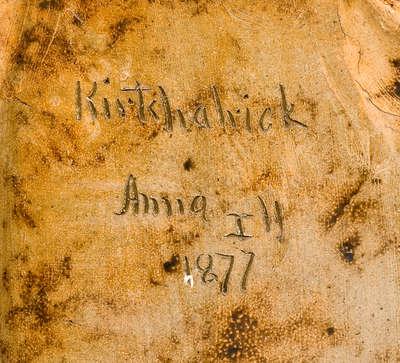 Kirkhalrick
Anna
1877